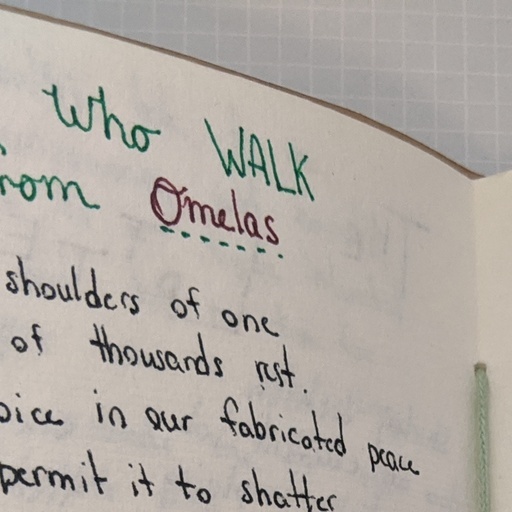 Who WALK
from Omelas
shoulders of one
of thousands rest.
in our fabricated peace
permit it to shatter